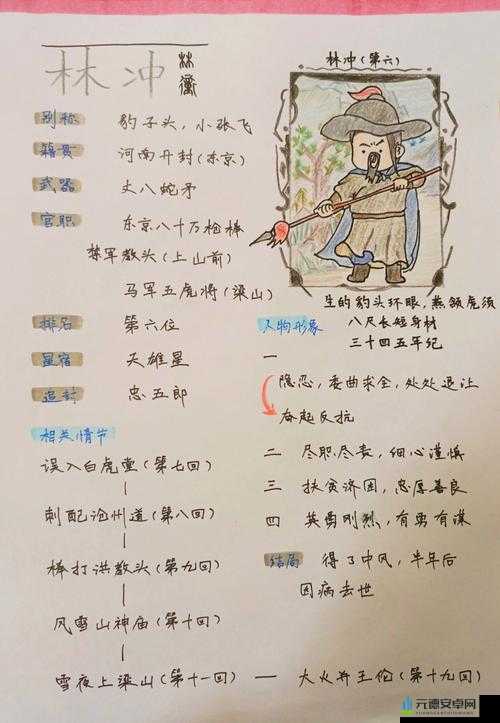 林冲 林衝
别称 豹子头，小张飞
籍贯 河南开封(东京)
武器 丈八蛇矛
官职 东京八十万枪棒
禁军教头(上山前)
马军五虎将(梁山)
排名 第六位
星宿 天雄星
追封 忠五郎
相关情节
误入白虎堂(第七回)
刺配沧州道(第八回)
棒打洪教头(第九回)
风雪山神庙(第十回)
雪夜上梁山(第十一回) — 大火并王伦(第十九回)
林冲(第六)
生的豹头环眼，燕颔虎须
八尺长短身材
三十四五年纪
人物形象
一
隐忍，委曲求全，处处退让
奋起反抗
二 尽职尽责，细心谨慎
三 扶贫济困，忠厚善良
四 英勇刚烈，有勇有谋
结局 得了中风，半年后
因病去世
元德安卓网